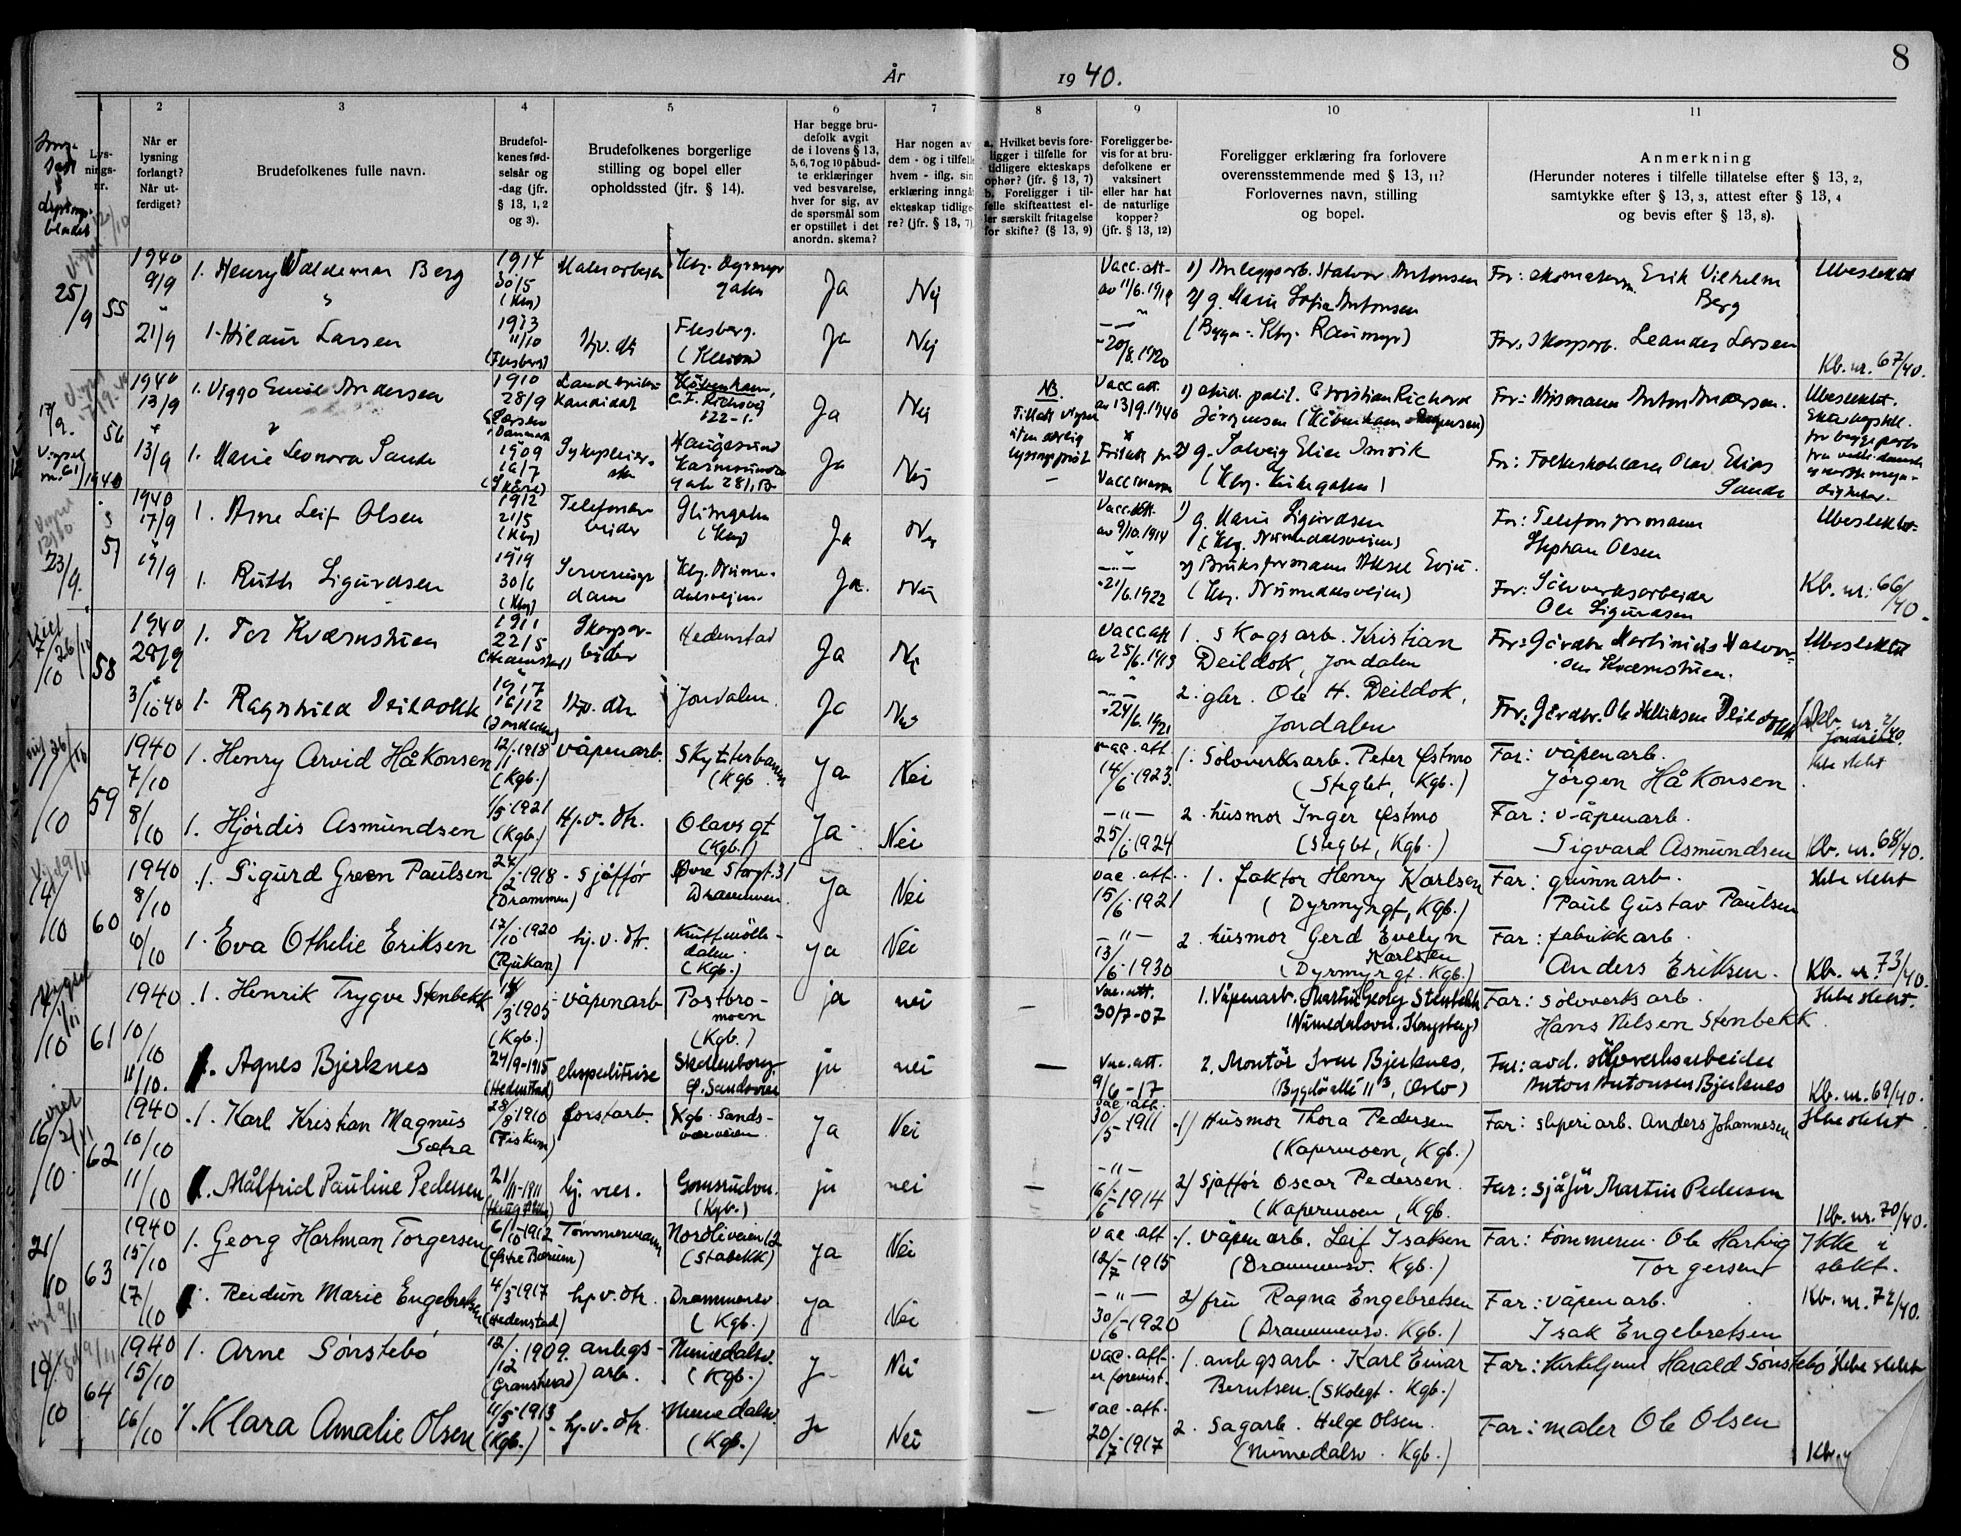 8
År 1940.
1
2
3
4
5
6
7
8
9
10
11
Lys-
nings-
nr.
Når er
lysning
forlangt?
Når ut-
ferdiget?
Brudefolkenes fulle navn.
Brudefol-
kenes fød-
selsår og
-dag (jfr.
§ 13, 1, 2
og 3).
Brudefolkenes borgerlige
stilling og bopel eller
opholdssted (jfr. § 14).
Har begge bru-
defolk avgit
de i lovens § 13,
5, 6, 7 og 10 påbud-
te erklæringer
ved besvarelse,
hver for sig, av
de spørsmål som
er opstillet i det
anordn. skema?
Har nogen av
dem - og i tilfelle
hvem - iflg. sin
erklæring inngåt
ekteskap tidlige-
re? (jfr. § 13, 7)
a. Hvilket bevis fore-
ligger i tilfelle for
tidligere ekteskaps
ophør? (jfr. § 13, 7)
b. Foreligger i til-
felle skifteattest el-
ler særskilt fritagelse
for skifte? (§ 13, 9)
Foreligger be-
vis for at bru-
defolkene er
vaksinert
eller har hat
de naturlige
kopper?
(jfr. § 13, 12)
Foreligger erklæring fra forlovere
overensstemmende med § 13, 11?
Forlovernes navn, stilling
og bopel.
Anmerkning
(Herunder noteres i tilfelle tillatelse efter § 13, 2,
samtykke efter § 13, 3, attest efter § 13, 4
og bevis efter § 13, 8).
25/9 55 1940 9/9 1. Henry Valdemar Berg 1914 30/5 (Kbg) Ja Nei Vacc. att. av 11/6.1919 1) Anleggsarb. Halvor Antonsen Far: Erik Vilhelm Berg Ubeslektet
2) g. Marie Sofia Antonsen
21/9 1. Hildur Larsen 1913 11/10 (Flesberg) Hjv. dtr Flesberg. Ja Nei 20/8.1920 Far: Skogsarb. Leander Larsen Kb. nr. 67/40.
17/9. 56 1940 13/9 1. Viggo Emil Andersen 1910 28/9 Danmark Landbruks-kandidat København, 122-1. Ja Nei NB. Vacc att. av 13/9.1940 1) stud. polit. Christian Richard Jörgensen Far: Anton Andersen. Ubeslektet.
13/9 1. Marie Leonora Sande 1909 16/7 Sykepleier- Haugesund Ja Nei 2) g. Solveig Elise (Kbg. Kirkegaten) Far: Olav Elias Sande
23/9. 57 1940 17/9 1. Arne Leif Olsen 1912 21/5 (Kbg) Telefonar-beider (Kbg) Ja Nei Vacc. att. av 9/10.1914 1) g. Marie Sigurdsen (Kbg. Numedalsveien) Far: Telefonformann Stephan Olsen Ubeslektet.
19/9 1. Ruth Sigurdsen 1919 30/6 (Kbg) Serverings-dame Kbg. Nume-dalsveien. Ja. Nei 21/6.1922 2) Bruksformann Aksel Evju. (Kbg. Numedalsveien) Far: Sölvverksarbeider Ole Sigurdsen Kb. nr. 66/40.
58 1940 28/9 1. Tor Kværnstuen 1911 22/5 (Hedenstad) Skogsar-beider Hedenstad Ja Nei Vacc att av 25/6.1913 1. Skogsarb. Kristian Deildok, Jondalen Far: Gårdbr. Martinius Halvor-sen Kværnstuen. Ubeslektet
3/10 40 1. Ragnhild Deildokk 1917 16/12 (Jondalen) Hjv. dtr Jondalen. Ja Nei 24/6.1921 2. gbr. Ole H. Deildok, Jondalen Far: Gårdbr. Ole Helliksen Deildokk Kb. nr. 2/40. Jondalen
/10 59 1940 7/10 1. Henry Arvid Håkonsen 12/1.1918 (Kgb.) våpenarb. (Kgb. Ja Nei vac. att. 14/6.1923. 1. Sølvverksarb. Peter Østmo (Steglet, Kgb.) Far: våpenarb. Jörgen Håkonsen Ikke slekt
8/10 1. Hjördis Asmundsen 1/5-1921 (Kgb.) Hj.v. dtr. Olavsgt (Kgb.) Ja Nei —"— 25/6-1924 2. husmor Inger Østmo (Steglet, Kgb.) Far: våpenarb. Sigvard Asmundsen Kb. nr. 68/40.
14/10 60 1940 8/10 1. Sigurd Green Paulsen 24/2.1918 (Drammen) Sjåffør Øvre Storgt. 31 Drammen. Ja Nei vac. att. 15/6-1921 1. faktor Henry Karlsen (Dyrmyrgt, Kgb.) Far: grubearb. Paul Gustav Paulsen Ikke slekt
10/10 1. Eva Othelie Eriksen 17/10.1920 (Rjukan) hj.v. dtr. (Kgb.) ja Nei —"— 13/6-1930 2. husmor Gerd Evelyn Karlsen (Dyrmyrgt. Kgb.) Far: fabrikkarb. Anders Eriksen. Kb. nr. 73/40.
/10 61 1940 10/10 1. Henrik Trygve Stenbekk /3 1905 (Kgb.) våpenarb Postbro-moen (Kgb.) ja nei — Vac. att. 30/7-07 1. Våpenarb. Martin Georg Stenbekk (Numedalsvn. Kongsberg) Far: sölvverksarb. Hans Nilsen Stenbekk. Ikke slekt.
11/10. 1. Agnes Bjerknes 24/9-1915 (Hedenstad) ekspeditrise Skollenborg Ø. Sandsvær ja nei — Vac. att. 9/6-17 2. Montör Iver Bjerknes, (Bygdöallé 11³, Oslo) Far: avd. sölvverksarbeider Anton Antonsen Bjerknes Kb. nr. 69/40.
16/10. 62 1940 10/10 1. Karl Kristian Magnus Sætra 28/8-1910 (Fiskum) forstarb. Kgb. Sands-værveien. ja Nei vac. att. 30/5-1911 1) Husmor Thora Pedersen (Kapermoen, Kgb.) Far: sliperiarb. Anders Johannesen Ikke slekt
11/10 1. Målfrid Pauline Pedersen 21/11-1911 hj. vær. Gomsrudvn. (Kgb.) ja nei — —"— 16/6-1914 2) Sjåffør Oscar Pedersen. (Kapermoen, Kgb. Far: sjåfør Martin Pedersen Kb. nr. 70/40.
21/10 63 1940 15/10 1. Georg Hartman Torgersen 6/10-1912 (Østre Bærum) Tømmermann Nordliveien 12 (Stabekk) ja Nei vac att 12/7-1915 1. våpenarb. Leif Isaksen (Drammensv. Kgb.) Far: tömmerm. Ole Hartvig Torgersen Ikke i slekt.
17/10 1. Reidun Marie Engebretsen 4/3-1917 (Hedenstad) hj.v. dtr. Drammensv (Kgb.) ja Nei —"— 30/6-1920 2) fru Ragna Engebretsen (Drammensv. Kgb.) Far: våpenarb. Isak Engebretsen Kb. nr. 72/40.
19/10 64 1940 15/10 1. Arne Sønstebö 12/12.1909. (Gransherad) anlegs-arb. Numedalsv. (Kgb.) ja Nei vac. att. er forevist. 1. anlegsarb. Karl Einar Berntsen. (Skolegt. Kgb.) Far: Kirketjener Harald Sønstebö Ikke slekt
16/10 1. Klara Amalie Olsen 11/5-1913 (Kgb.) hj.v. dtr. Numedalsv. (Kgb.) ja Nei — vac. att. 20/7-1917 2. Sagarb. Helge Olsen. (Numedalsv. Kgb.) Far: maler Ole Olsen Kb.